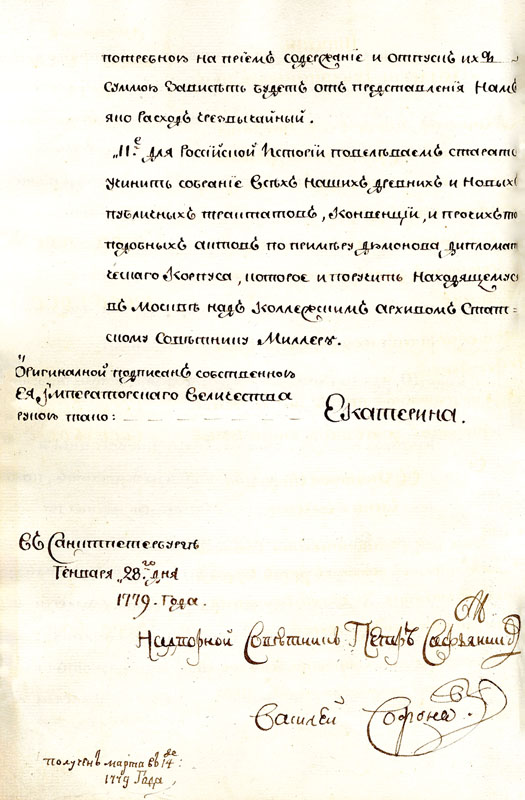 потребной на прїемъ содержанїе и отпускъ ихъ
суммою зависѣть будетъ отъ представленїя Намъ
яко расходъ чрезвычайный.
„II.е для Россїйской Исторїи повелѣваемъ старать
учинить собранїе всѣхъ нашихъ древнихъ и новыхъ
публичныхъ трактатовъ, Конвенцїй, и прочихъ то
подобныхъ актовъ по примѣру дюмонова дипломат
ческаго Корпуса, которое и поручить находящемус
въ Москвѣ надъ Коллежскимъ архивомъ Стат=
скому Совѣтнику Миллеру.
Оригиналной подписанъ собственною
Ея Императорскаго Величества
рукою тако: Екатерина.
Въ Санктпетербургѣ
Генваря „28.го дня
1779. Года.
Надворной Совѣтникъ Петръ
Василей
полученъ марта въ 14.де:
1779 Года